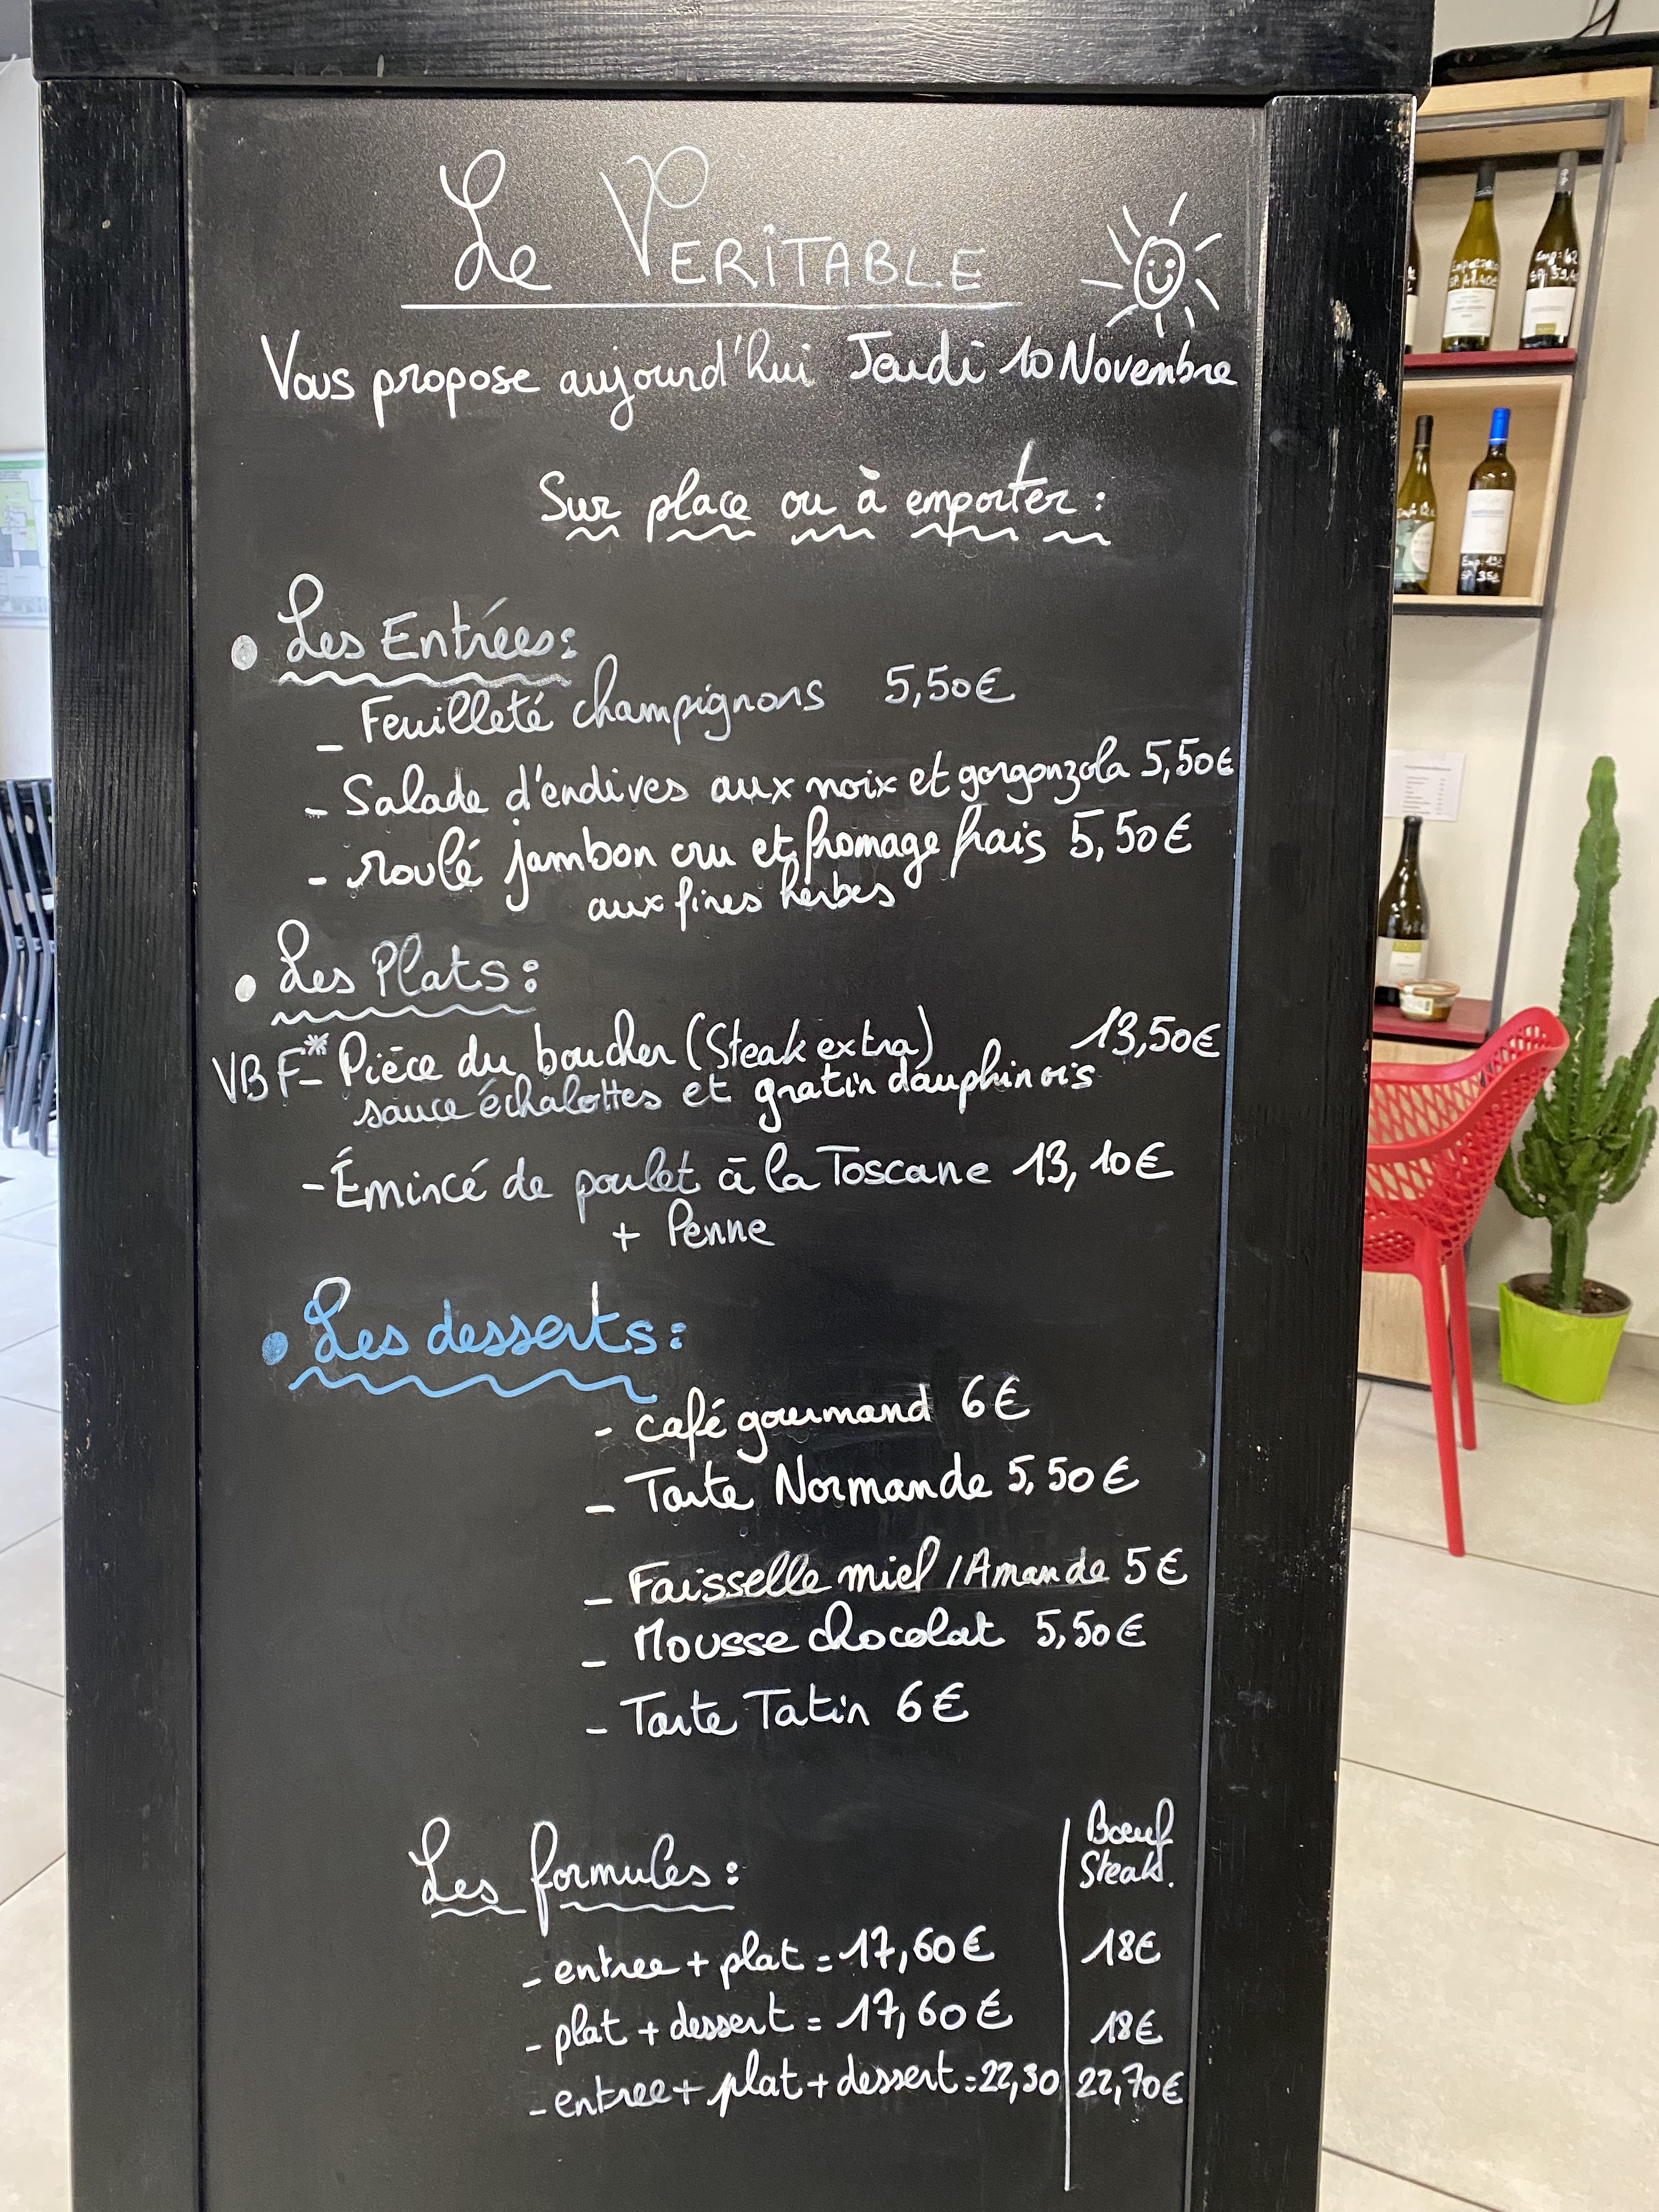 Le VERITABLE
Vous propose aujourd'hui Jeudi 10 Novembre
Sur place ou à emporter :
• Les Entrées:
- Feuilleté champignons 5,50€
- Salade d'endives aux noix et gorgonzola 5,50€
- roulé jambon cru et fromage frais 5,50€
aux fines herbes
• Les Plats:
VBF* - Pièce du boucher (Steak extra) 13,50€
sauce échalottes et gratin dauphinois
- Émincé de poulet à la Toscane 13,10€
+ Penne
• Les desserts:
- café gourmand 6€
- Tarte Normande 5,50€
- Faisselle miel / Amande 5€
- Mousse chocolat 5,50€
- Tarte Tatin 6€
Bœuf
Les formules: Steak.
- entree + plat = 17,60€ 18€
- plat + dessert = 17,60€ 18€
- entree + plat + dessert = 22,30 22,70€